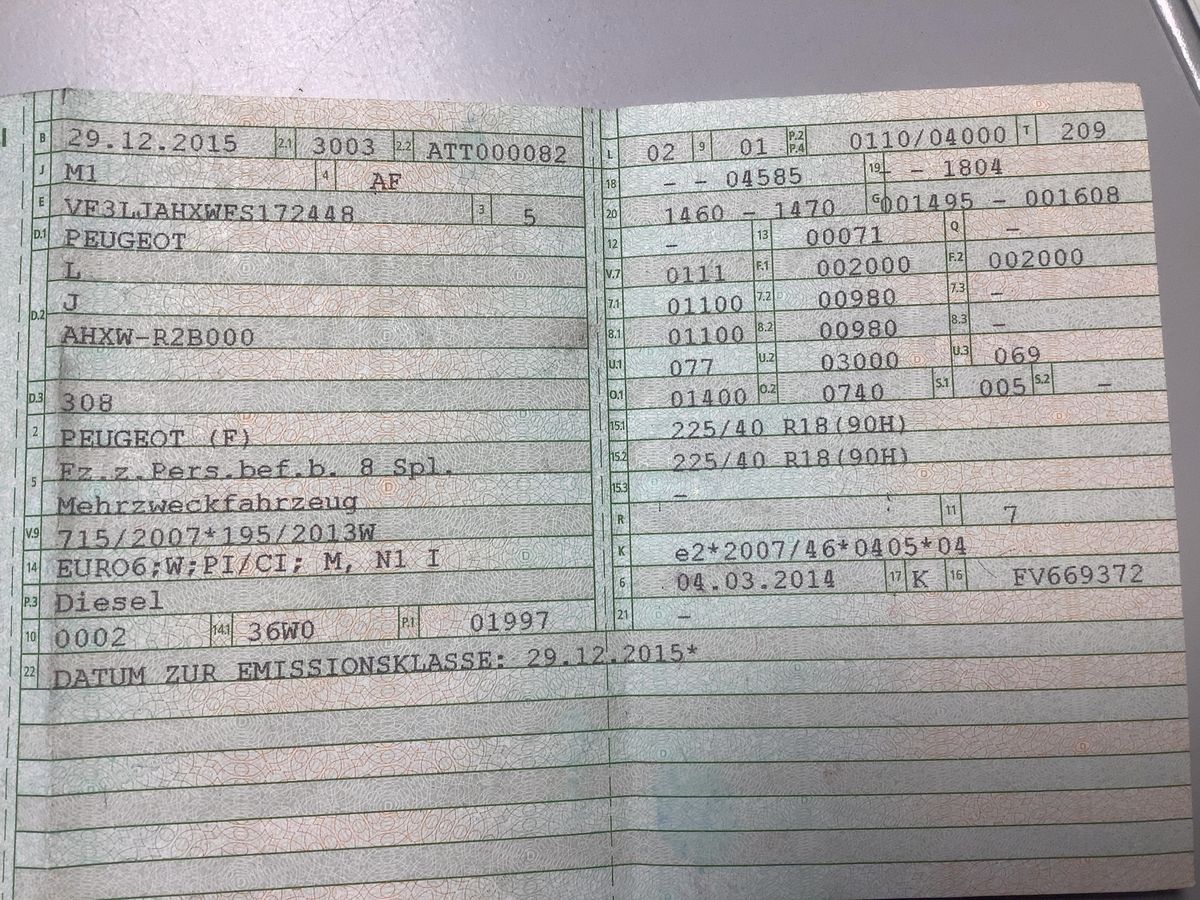 B 29.12.2015 2.1 3003 2.2 ATT000082
J M1 4 AF
E VF3LJAHXWFS172448 3 5
D.1 PEUGEOT
L
D.2 J
AHXW-R2B000
D.3 308
2 PEUGEOT (F)
5 Fz.z.Pers.bef.b. 8 Spl.
Mehrzweckfahrzeug
V.9 715/2007*195/2013W
14 EURO6;W;PI/CI; M, N1 I
P.3 Diesel
10 0002 14.1 36W0 P.1 01997
22 DATUM ZUR EMISSIONSKLASSE: 29.12.2015*
L 02 9 01 P.2 P.4 0110/04000 T 209
18 - - 04585 19 - - 1804
20 1460 - 1470 G 001495 - 001608
12 - 13 00071 Q -
V.7 0111 F.1 002000 F.2 002000
7.1 01100 7.2 00980 7.3 -
8.1 01100 8.2 00980 8.3 -
U.1 077 U.2 03000 U.3 069
O.1 01400 O.2 0740 S.1 005 S.2 -
15.1 225/40 R18(90H)
15.2 225/40 R18(90H)
15.3 -
R 11 7
K e2*2007/46*0405*04
6 04.03.2014 17 K 16 FV669372
21 -